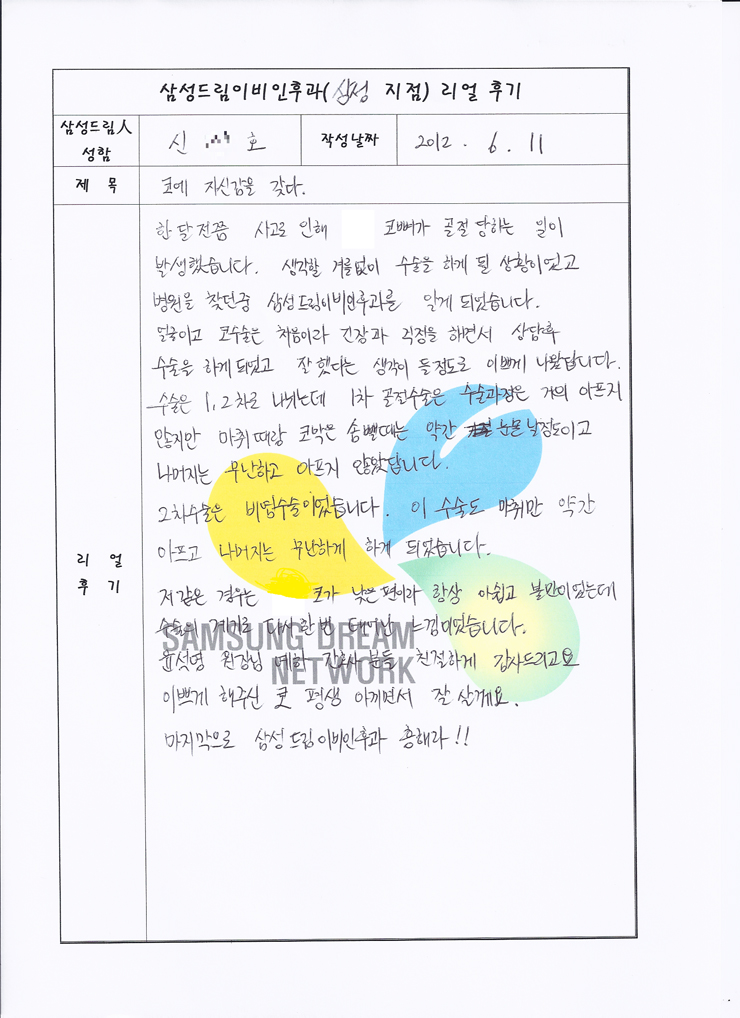 삼성드림이비인후과(삼성 지점) 리얼 후기
삼성드림人 성함
신 호
작성날짜
2012. 6. 11
제 목
코에 자신감을 갖다.
리 얼 후 기
한달전쯤 사고로 인해 코뼈가 골절 당하는 일이
발생했습니다. 생각할 겨를없이 수술을 하게 될 상황이었고
병원을 찾던중 삼성드림이비인후과를 알게 되었습니다.
얼굴이고 코수술은 처음이라 긴장과 걱정을 하면서 상담후
수술을 하게되었고 잘했다는 생각이 들정도로 이쁘게 나왔답니다.
수술은 1,2차로 나뉘는데 1차 골절수술은 수술과정은 거의 아프지
않지만 마취때랑 코막은 솜뺄때는 약간 눈물날정도이고
나머지는 무난하고 아프지 않았답니다.
2차수술은 비띰수술이었습니다. 이 수술도 마취만 약간
아프고 나머지는 무난하게 하게 되었습니다.
저같은 경우는 코가 낮은편이라 항상 아쉽고 불만이었는데
수술의 계기로 다시한번 태어난 느낌이었습니다.
윤석영 원장님 간호사분들 친절하게 감사드리고요
이쁘게 해주신 코 평생 아끼면서 잘 살게요.
마지막으로 삼성드림이비인후과 흥해라!!
SAMSUNG DREAM
NETWORK